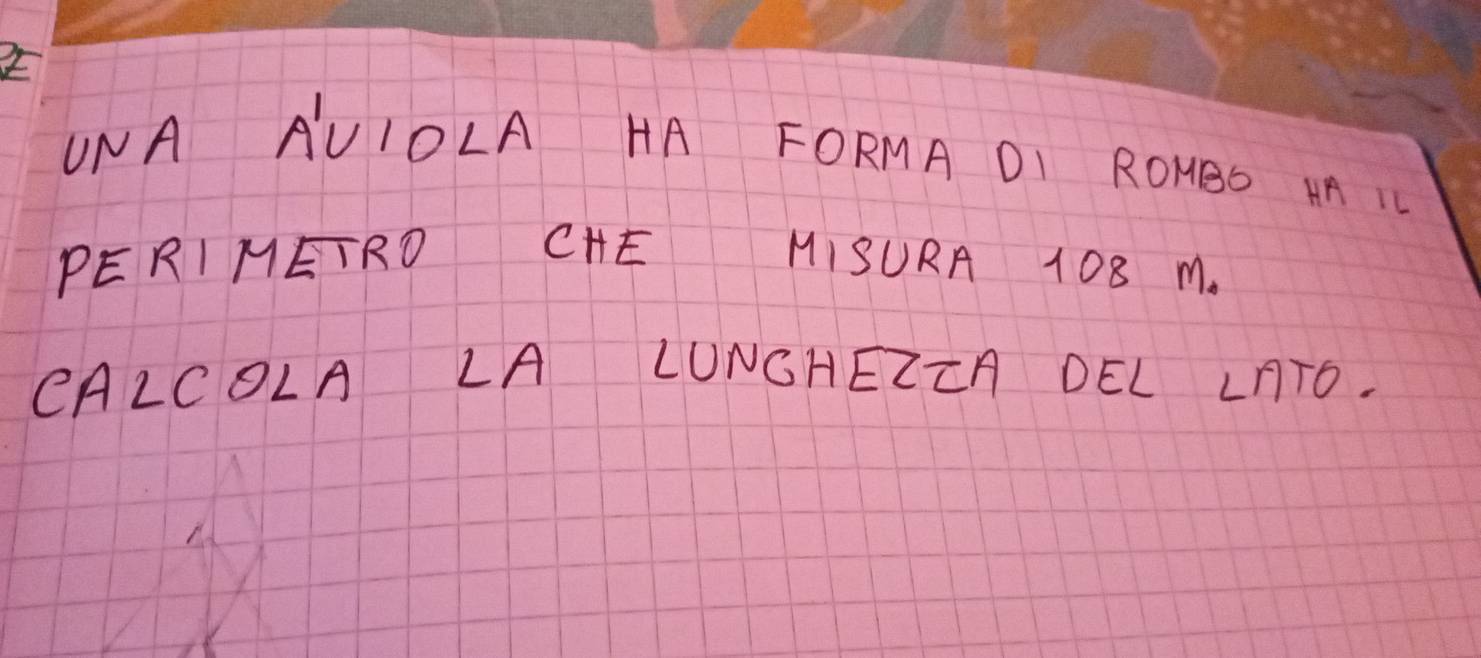 RE
UNA A'UIOLA HA FORMA DI ROMBO HA IL
PERIMETRO CHE MISURA 108 M.
CALCOLA LA LUNGHEZZA DEL LATO.